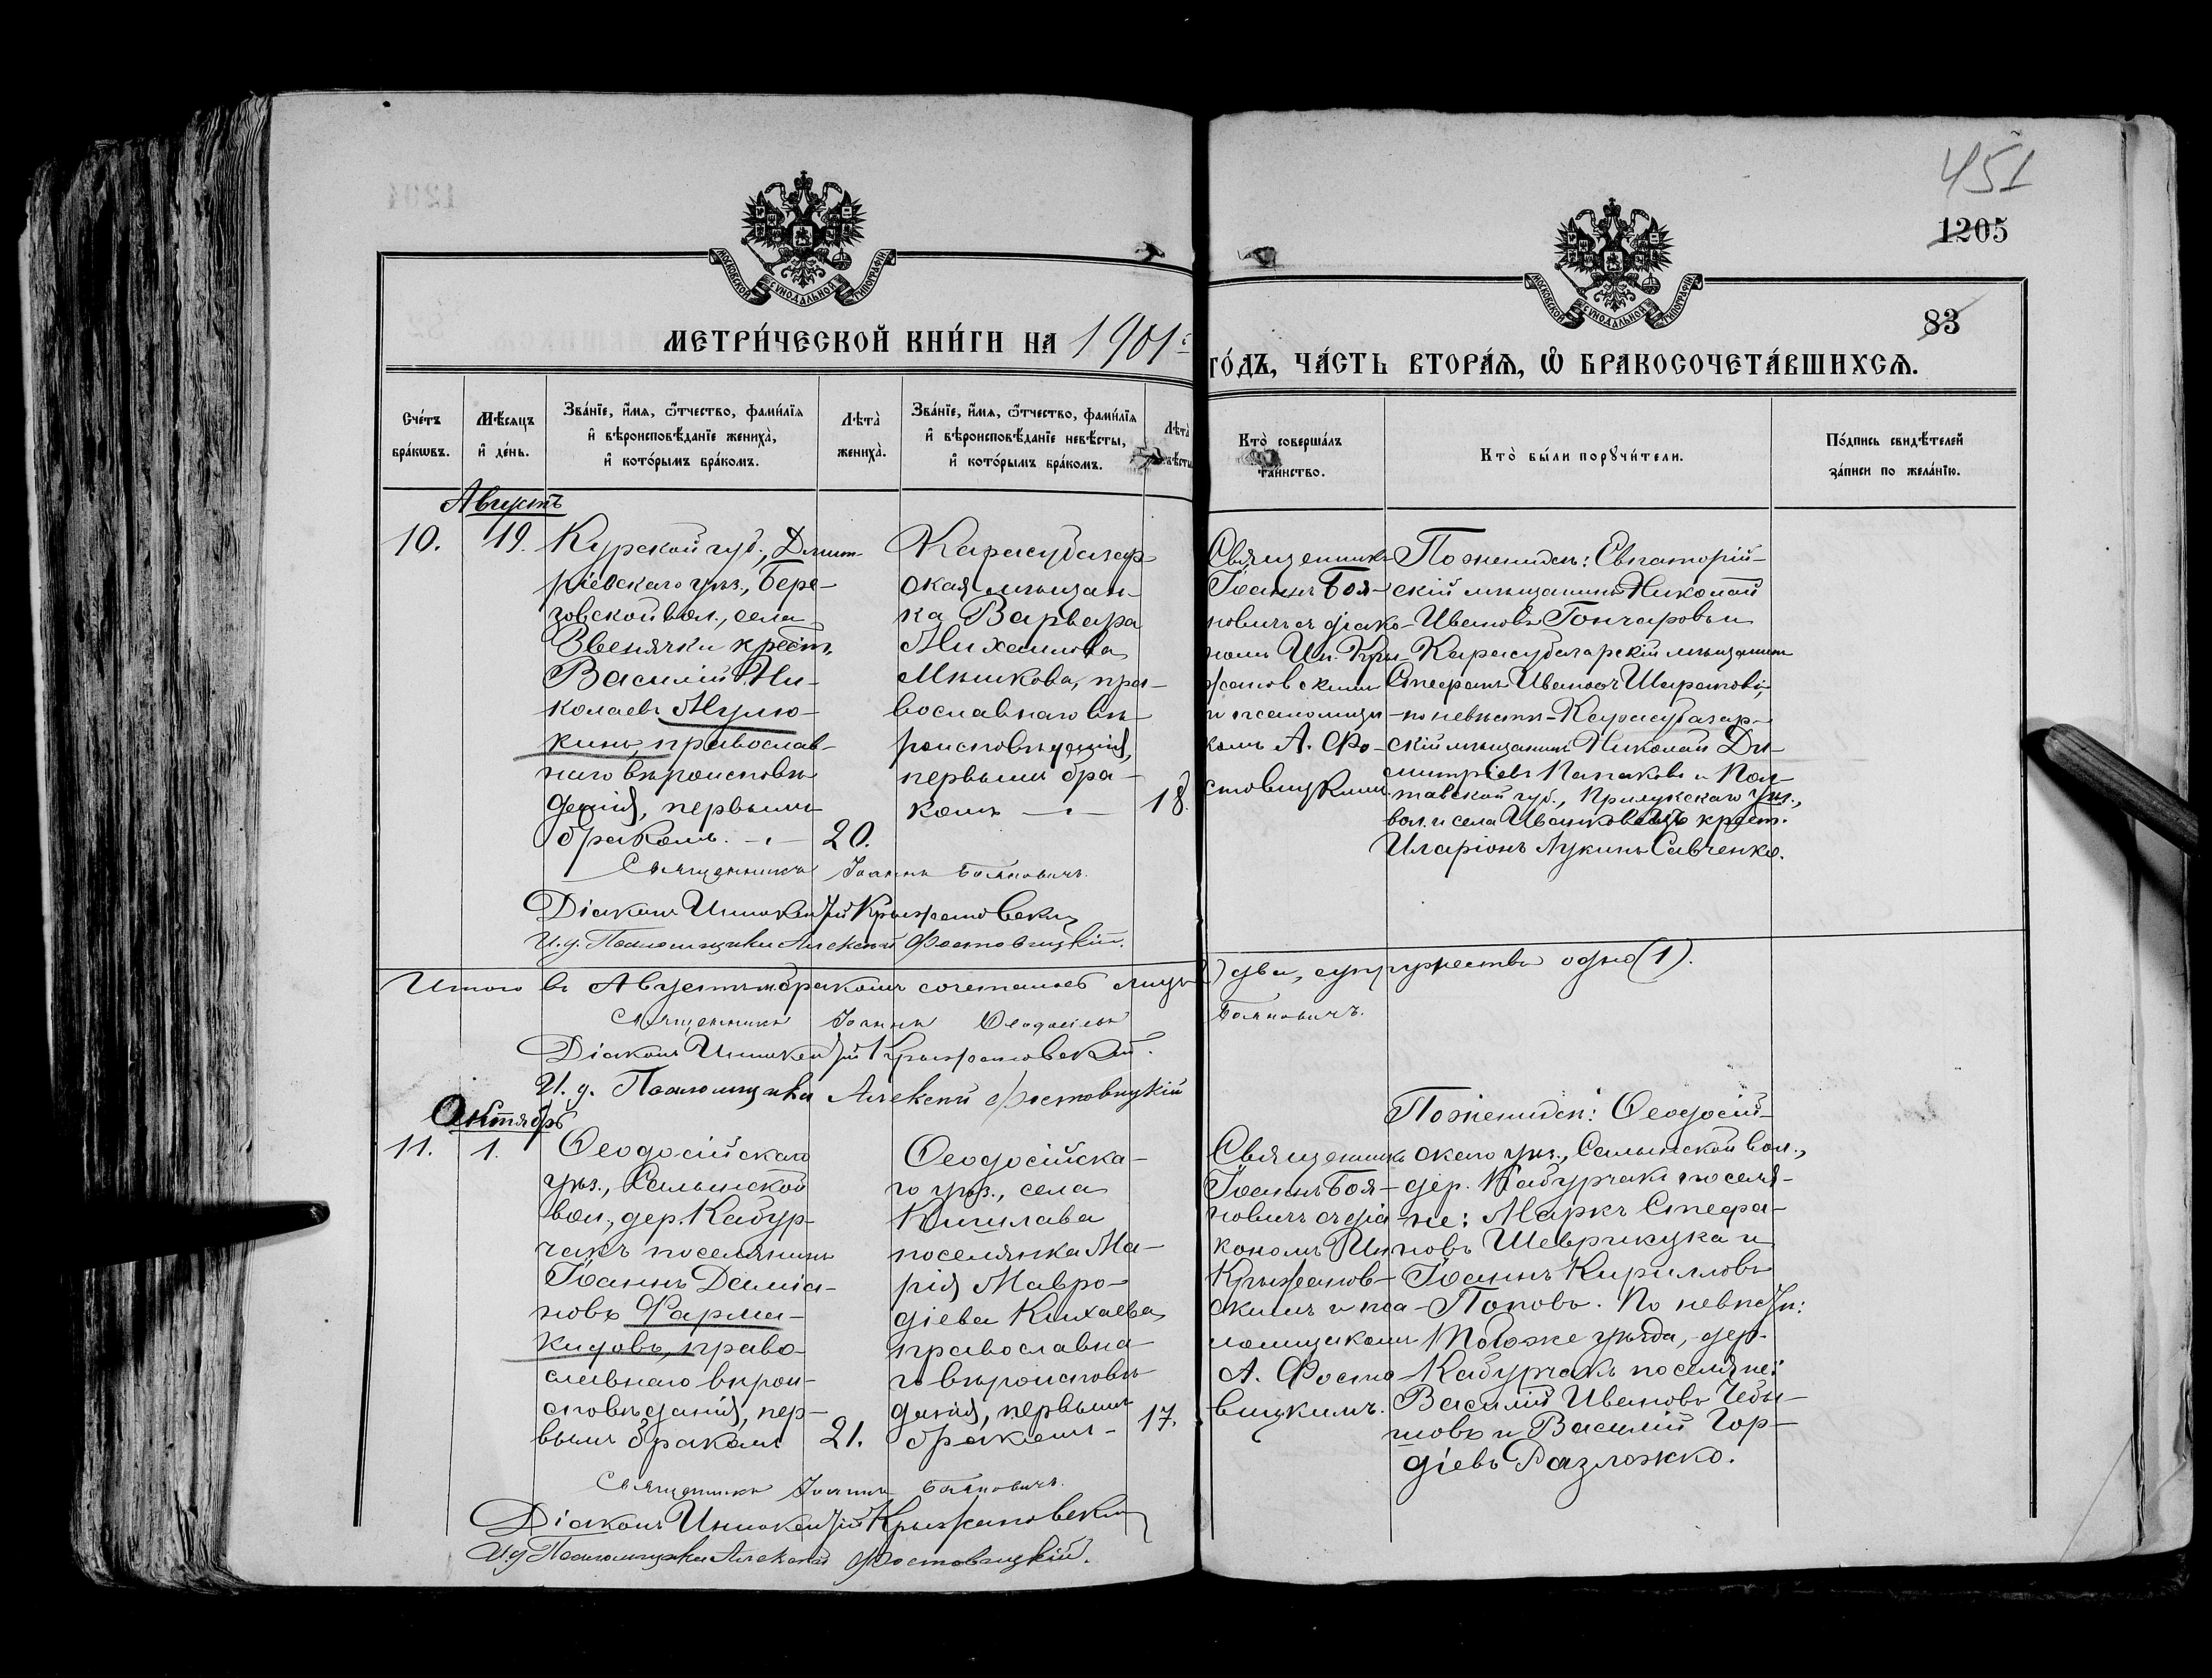 451
1205
83
МОСКОВСКОЙ СѴНОДАЛЬНОЙ ТИПОГРАФІИ
МОСКОВСКОЙ СѴНОДАЛЬНОЙ ТИПОГРАФІИ
МЕТРИ́ЧЕСКОЙ КНИ́ГИ НА 1901
ГО́ДЪ, ЧА́СТЬ ВТОРА́Я, Ѡ БРАКОСОЧЕТА́ВШИХСЯ.
Сче́тъ
бра́кѡвъ.
Мѣ́сяцъ
и҆ де́нь.
Зва́нїе, и҆́мя, ѻ҆́тчество, фами́лїя
и҆ вѣроисповѣ́данїе жениха̀,
и҆ кото́рымъ бра́комъ.
Лѣта̀
жениха̀.
Зва́нїе, и҆́мя, ѻ҆́тчество, фами́лїя
и҆ вѣроисповѣ́данїе невѣ́сты,
и҆ кото́рымъ бра́комъ.
Лѣта̀
Кто̀ соверша́лъ
та́инство.
Кто̀ бы́ли порꙋчи́тели.
По́дпись свидѣ́телей
за́писи по жела́нїю.
Августъ
10.
19.
Курской губ., Дмит-
ріевскаго уѣз., Бере-
зовской вол., села
Звенячки крест.
Василій Ни-
колаевъ Мулю-
кинъ, православ-
наго вѣроисповѣ-
данія, первымъ
бракомъ.
20.
Карасубазар-
ская мѣщан-
ка Варвара
Михаилова
Мѣшкова, пра-
вославнаго вѣ-
роисповѣданія,
первымъ бра-
комъ
18.
Священникъ
Іоаннъ Боя-
новичъ съ діако-
номъ Ин. Кры-
жановскимъ
и псаломщи-
комъ А. Фо-
стовицкимъ.
По женихѣ: Евпаторій-
скій мѣщанинъ Николай
Ивановъ Гончаровъ и
Карасубазарскій мѣщанинъ
Стефанъ Ивановъ Шараповъ,
по невѣстѣ – Карасубазар-
скій мѣщанинъ Николай Ди-
митріевъ Папаковъ и Пол-
тавской губ., Прилукскаго уѣз.,
вол. и села Иванковецъ крест.
Иларіонъ Лукинъ Савченко.
Священникъ Іоаннъ Бояновичъ.
Діаконъ Иннокентій Крыжановскій
И. д. Псаломщика Алексѣй Фостовицкій.
Итого въ Августѣ м. бракомъ сочеталось лицъ два, супружество одно (1).
Священникъ Іоаннъ Ѳеодосіевъ Бояновичъ.
Діаконъ Иннокентій Крыжановскій.
И. д. Псаломщика Алексѣй Фостовицкій
Октябрь
11.
1.
Ѳеодосійскаго
уѣз., Салынской
вол., дер. Кабур-
чакъ поселянинъ
Іоаннъ Даміа-
новъ Фарма-
кидовъ, право-
славнаго вѣрои-
сповѣданія, пер-
вымъ бракомъ
21.
Ѳеодосійска-
го уѣз., села
Кишлава
поселянка Ма-
рія Мавро-
діева Кихаева
православна-
го вѣроисповѣ-
данія, первымъ
бракомъ –
17.
Священникъ
Іоаннъ Боя-
новичъ съ діа-
кономъ Ин
Крыжанов-
скимъ и пса-
ломщикомъ
А. Фосто
вицкимъ.
По женихѣ: Ѳеодосій-
скаго уѣз., Салынской вол.,
дер. Кабурчакъ поселя-
не: Маркъ Стефа-
новъ Шеврикука и
Іоаннъ Кирилловъ
Поповъ. По невѣстѣ:
Того же уѣзда, дер.
Кабурчакъ поселяне:
Василій Ивановъ Чебы-
шовъ и Василій Гор-
діевъ Разложко.
Священникъ Іоаннъ Бояновичъ.
Діаконъ Иннокентій Крыжановскій
И. д. Псаломщика Алексѣй Фостовицкій.